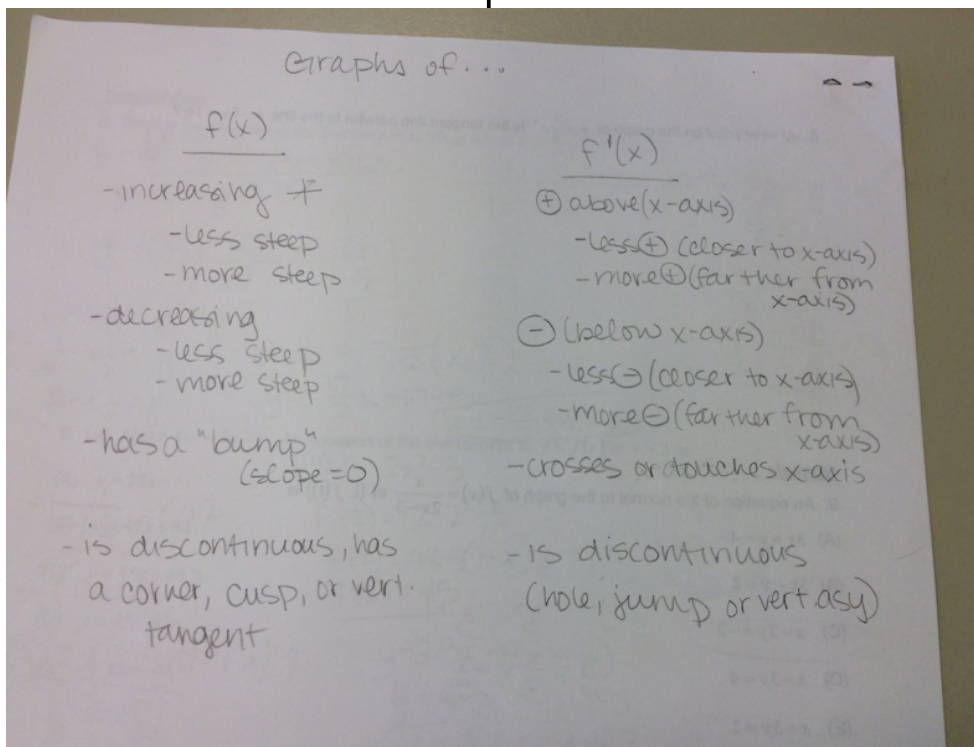 Graphs of...
f(x)
- increasing +
- less steep
- more steep
- decreasing
- less steep
- more steep
- has a "bump"
(slope = 0)
- is discontinuous, has
a corner, cusp, or vert.
tangent
f'(x)
⊕ above (x-axis)
- less ⊕ (closer to x-axis)
- more ⊕ (farther from
x-axis)
⊖ (below x-axis)
- less ⊖ (closer to x-axis)
- more ⊖ (farther from
x-axis)
- crosses or touches x-axis
- is discontinuous
(hole, jump or vert asy)